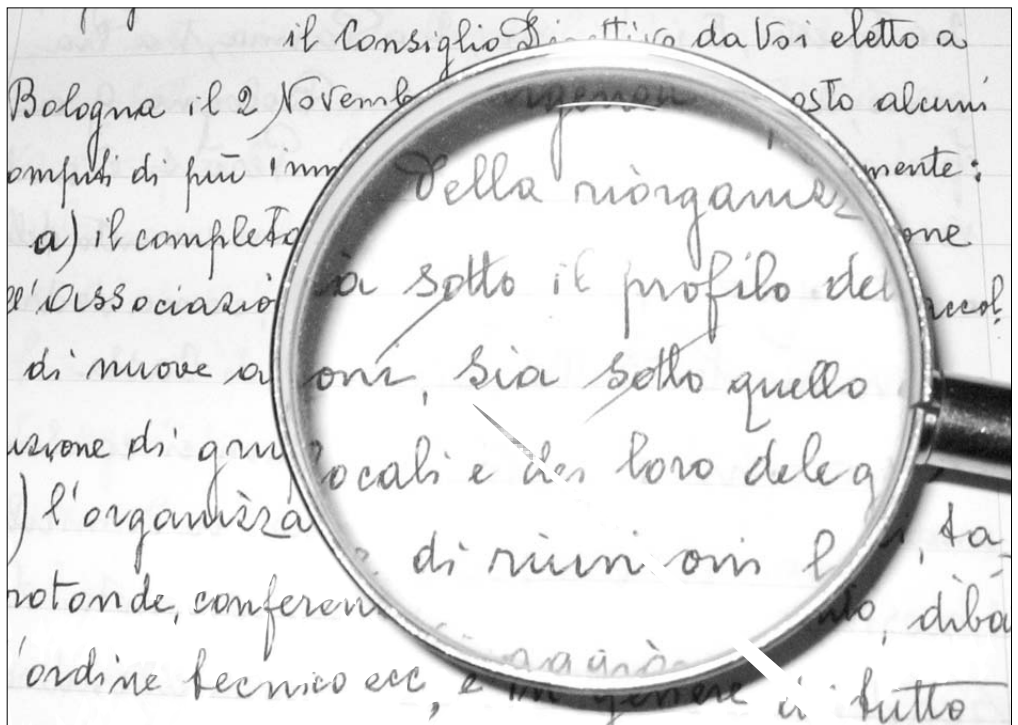 il Consiglio Direttivo da Voi eletto a
Bologna il 2 Novemb osto alcuni
ompiti di più imm mente:
a) il completa della riorganiz one
ll'associazio ia sotto il profilo del accol
di nuove a oni, sia sotto quello
uzione di gru locali e dei loro deleg
) l'organizza di riunioni l , ta
rotonde, conferen to, diba
'ordine tecnico ecc, e in genere di tutto